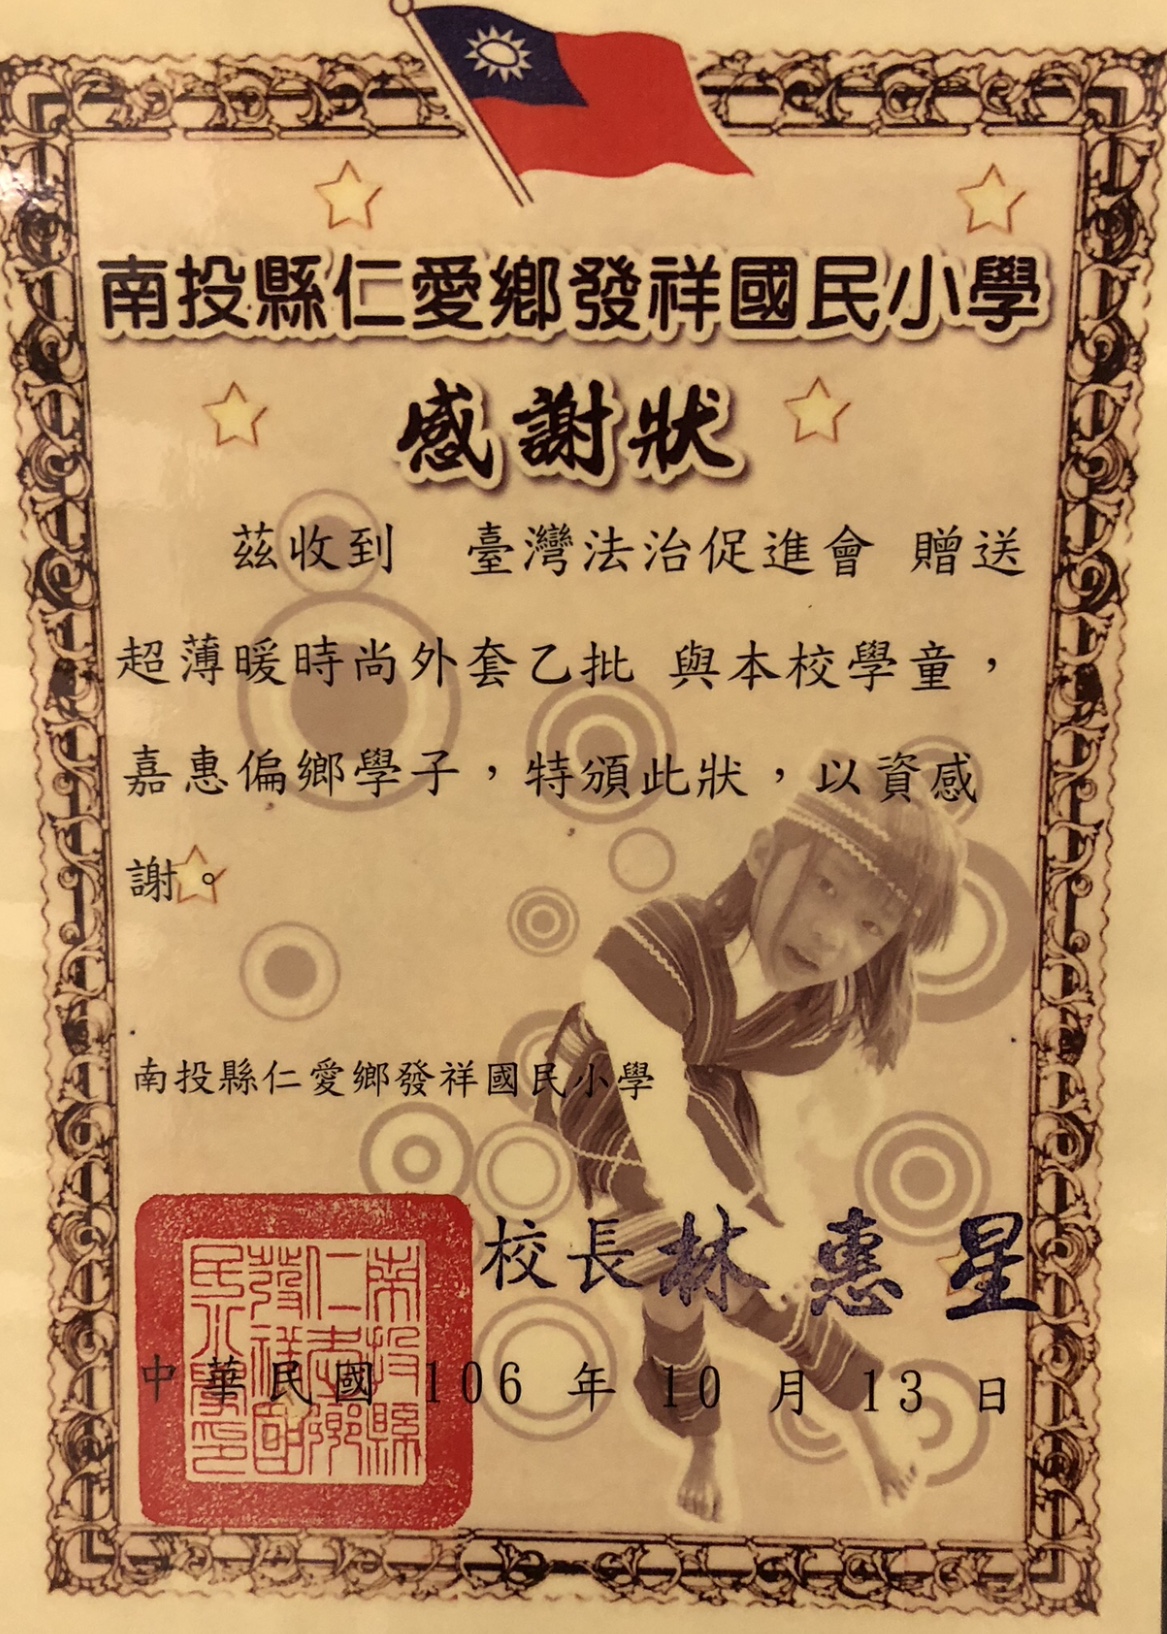 南投縣仁愛鄉發祥國民小學
感謝狀
茲收到 臺灣法治促進會 贈送
超薄暖時尚外套乙批 與本校學童，
嘉惠偏鄉學子，特頒此狀，以資感
謝。
南投縣仁愛鄉發祥國民小學
校長林惠星
南投縣
仁愛鄉
發祥國
民小學印
中華民國 106 年 10 月 13 日